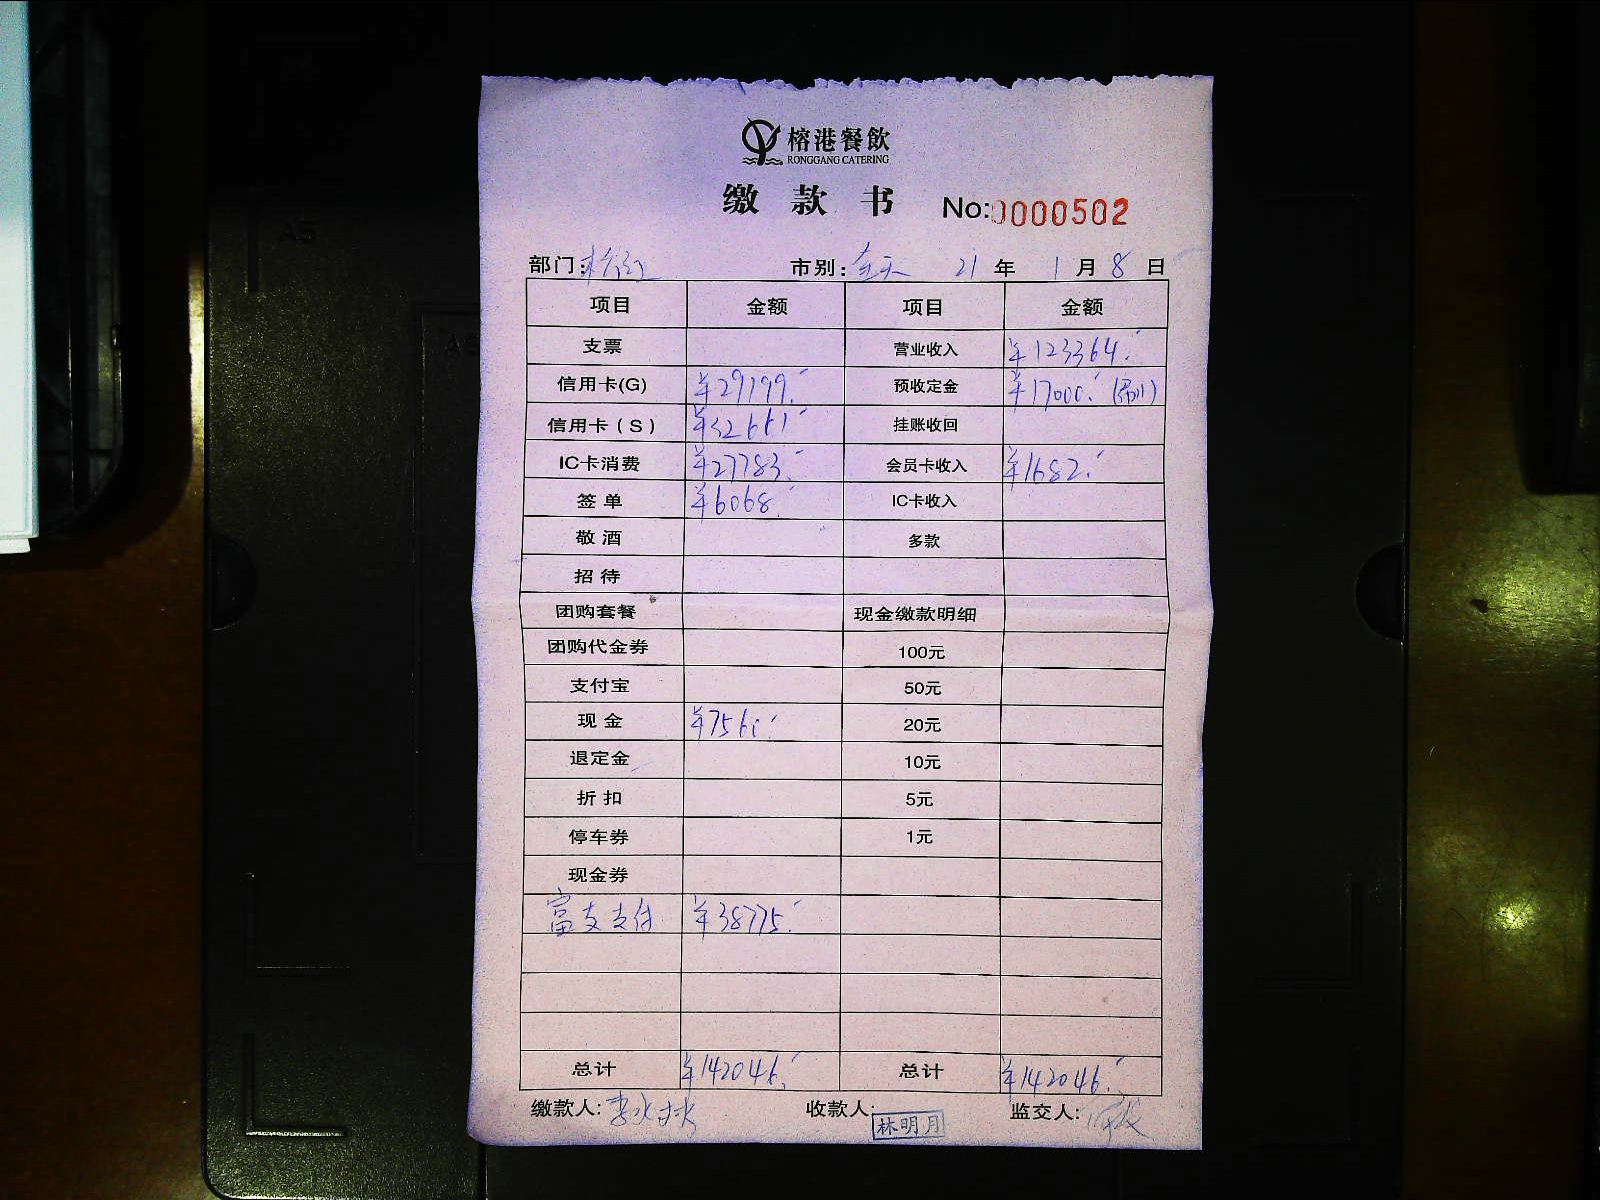 榕港餐飲
RONGGANG CATERING
缴款书 No:0000502
部门: 市别: 全天 21年 1月 8日
项目 金额 项目 金额
支票 营业收入 ¥123364.-
信用卡(G) ¥29199.- 预收定金 ¥17000.-
信用卡(S) ¥32661.- 挂账收回
IC卡消费 ¥27783.- 会员卡收入 ¥1682.-
签单 ¥6068.- IC卡收入
敬酒 多款
招待
团购套餐 现金缴款明细
团购代金券 100元
支付宝 50元
现金 ¥7560.- 20元
退定金 10元
折扣 5元
停车券 1元
现金券
富友支付 ¥38775.-
总计 ¥142046.- 总计 ¥142046.-
缴款人: 收款人: 林明月 监交人: